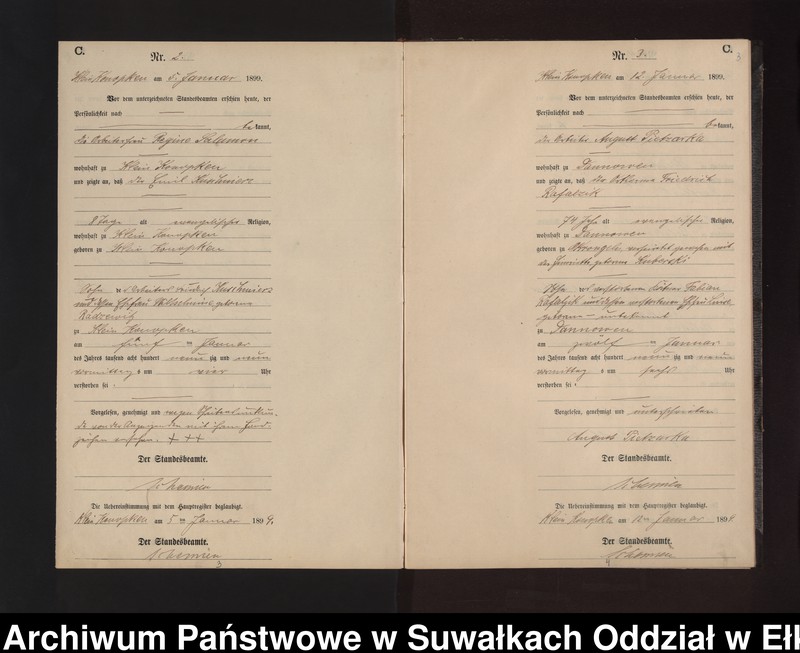 C.
Nr. 2.
Klein Konopken am 5. Januar 1899.
Vor dem unterzeichneten Standesbeamten erschien heute, der
Persönlichkeit nach
be kannt,
die Arbeiterfrau Regine
wohnhaft zu Klein Konopken
und zeigte an, daß der Emil
8 Tage alt evangelischer Religion,
wohnhaft zu Klein Konopken
geboren zu Klein Konopken
Sohn des Arbeiters
und dessen Ehefrau Wilhelmine geborene
zu Klein Konopken
am fünf ten Januar
des Jahres tausend acht hundert neun zig und neun
vormittags um vier Uhr
verstorben sei.
Vorgelesen, genehmigt und wegen Schreibensunkun-
de von der Anzeigenden mit ihrem Hand-
zeichen versehen. + + +
Der Standesbeamte.
Die Uebereinstimmung mit dem Hauptregister beglaubigt.
Klein Konopken am 5 ten Januar 1899.
Der Standesbeamte.
3
C.
3
Nr. 3.
Klein Konopken am 12 Januar 1899.
Vor dem unterzeichneten Standesbeamten erschien heute, der
Persönlichkeit nach
be kannt,
der Arbeiter August Pietzarka
wohnhaft zu Dannowen
und zeigte an, daß der Friedrich
Rafalzik
74 Jahr alt evangelischer Religion,
wohnhaft zu Dannowen
geboren zu verheirathet gewesen mit
der Henriette geborene
Sohn des verstorbenen Fabian
Rafalzik und dessen verstorbenen Ehefrau
geboren – unbekannt
zu Dannowen
am zwölf ten Januar
des Jahres tausend acht hundert neun zig und neun
vormittags um sechs Uhr
verstorben sei.
Vorgelesen, genehmigt und unterschrieben
August Pietzarka
Der Standesbeamte.
Die Uebereinstimmung mit dem Hauptregister beglaubigt.
Klein Konopken am 12 ten Januar 1899
Der Standesbeamte.
4
Archiwum Państwowe w Suwałkach Oddział w Ełk